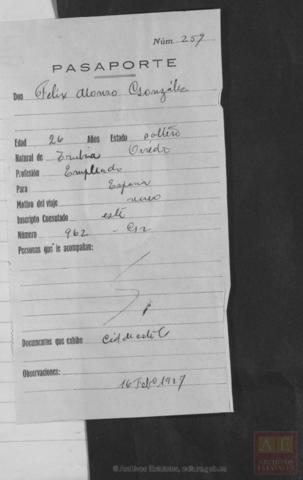 Núm. 259
PASAPORTE
Don Felix Alonso González
Edad 26 Años Estado soltero
Natural de Trubia Oviedo
Profesión Empleado
Para España
Motivo del viaje
Inscripto Consulado este
Número 962
Personas que le acompañan:
Documentos que exhibe
Observaciones:
16 Feb 1927
© Archivos Estatales, cultura.gob.es
ARCHIVOS ESTATALES